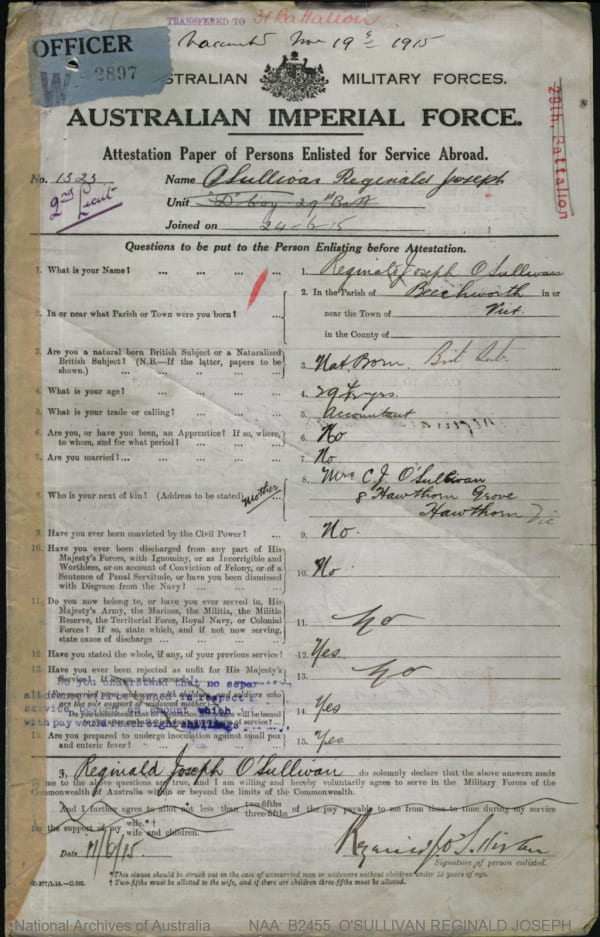 TRANSFERRED TO 31 Battalion
OFFICER
W 2897
Nov 19th 1915
STRALIAN MILITARY FORCES.
AUSTRALIAN IMPERIAL FORCE.
29th. Battalion
Attestation Paper of Persons Enlisted for Service Abroad.
No. 1523 Name O'Sullivan Reginald Joseph
2nd Lieut
Unit D Coy 29th Batt
Joined on 24-6-15
Questions to be put to the Person Enlisting before Attestation.
1. What is your Name? ... ... ... ... 1. Reginald Joseph O'Sullivan
2. In or near what Parish or Town were you born? ... 2. In the Parish of Beechworth in or
near the Town of Vict.
in the County of
3. Are you a natural born British Subject or a Naturalized
British Subject? (N.B.—If the latter, papers to be
shown.) ... ... ... ... ... 3. Nat Born. Brit Sub.
4. What is your age? ... ... ... ... 4. 29 yrs.
5. What is your trade or calling? ... ... ... 5. Accountant
6. Are you, or have you been, an Apprentice? If so, where,
to whom, and for what period? ... ... ... 6. No
7. Are you married? ... ... ... ... 7. No
8. Who is your next of kin? (Address to be stated) Mother 8. Mrs C.J. O'Sullivan
8 Hawthorn Grove
Hawthorn Vic
9. Have you ever been convicted by the Civil Power? ... 9. No.
10. Have you ever been discharged from any part of His
Majesty's Forces, with Ignominy, or as Incorrigible and
Worthless, or on account of Conviction of Felony, or of a
Sentence of Penal Servitude, or have you been dismissed
with Disgrace from the Navy? ... ... ... 10. No.
11. Do you now belong to, or have you ever served in, His
Majesty's Army, the Marines, the Militia, the Militia
Reserve, the Territorial Force, Royal Navy, or Colonial
Forces? If so, state which, and if not now serving,
state cause of discharge ... ... ... 11. No
12. Have you stated the whole, if any, of your previous service? 12. Yes.
13. Have you ever been rejected as unfit for His Majesty's
Service? If so, on what grounds? 13. No
Do you understand that no separation
14. Yes
15. Are you prepared to undergo inoculation against small pox
and enteric fever? ... ... ... 15. Yes
I, Reginald Joseph O'Sullivan do solemnly declare that the above answers made
by me to the above questions are true, and I am willing and hereby voluntarily agree to serve in the Military Forces of the
Commonwealth of Australia within or beyond the limits of the Commonwealth.
And I further agree to allot not less than two-fifths three-fifths of the pay payable to me from time to time during my service
for the support of my wife.*†
wife and children.
Date 11/6/15. Reginald J O'Sullivan
Signature of person enlisted.
*This clause should be struck out in the case of unmarried men or widowers without children under 18 years of age.
† Two-fifths must be allotted to the wife, and if there are children three-fifths must be allotted.
National Archives of Australia NAA: B2455, O'SULLIVAN REGINALD JOSEPH